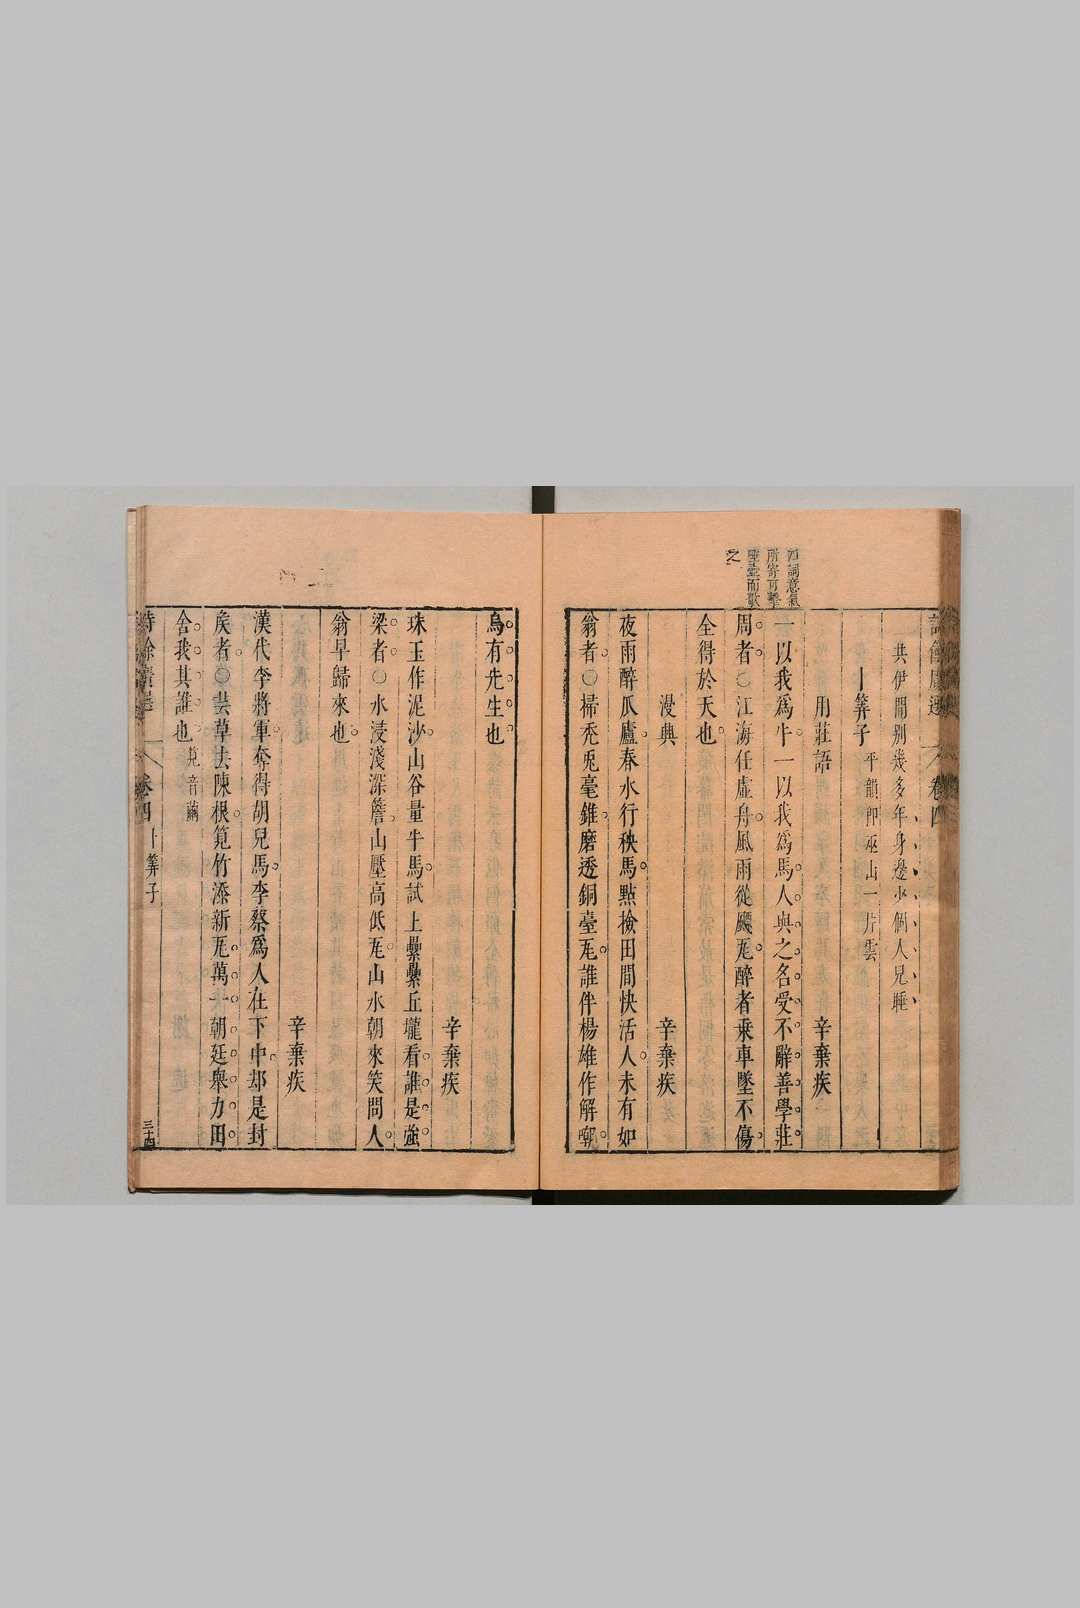 四詞意氣
所寄可擊
唾壺而歌
之
詩餘廣選 卷四
共伊間别幾多年身邊少個人兒睡
卜筭子 平韻即巫山一片雲
用莊語 辛棄疾
一以我爲牛一以我爲馬人與之名受不辭善學莊
周者○江海任虛舟風雨從飄瓦醉者乘車墜不傷
全得於天也
漫典 辛棄疾
夜雨醉瓜廬春水行秧馬點撿田間快活人未有如
翁者○掃禿兎毫錐磨透銅臺瓦誰伴楊雄作解嘲
烏有先生也
辛棄疾
珠玉作泥沙山谷量牛馬試上纍纍丘壠看誰是強
梁者○水浸淺深簷山壓高低瓦山水朝來笑問人
翁早歸來也
辛棄疾
漢代李將軍奪得胡兒馬李蔡爲人在下中却是封
矦者○芸草去陳根筧竹添新瓦萬一朝廷舉力田
舍我其誰也 筧音繭
詩餘廣選 卷四 卜筭子 三十四